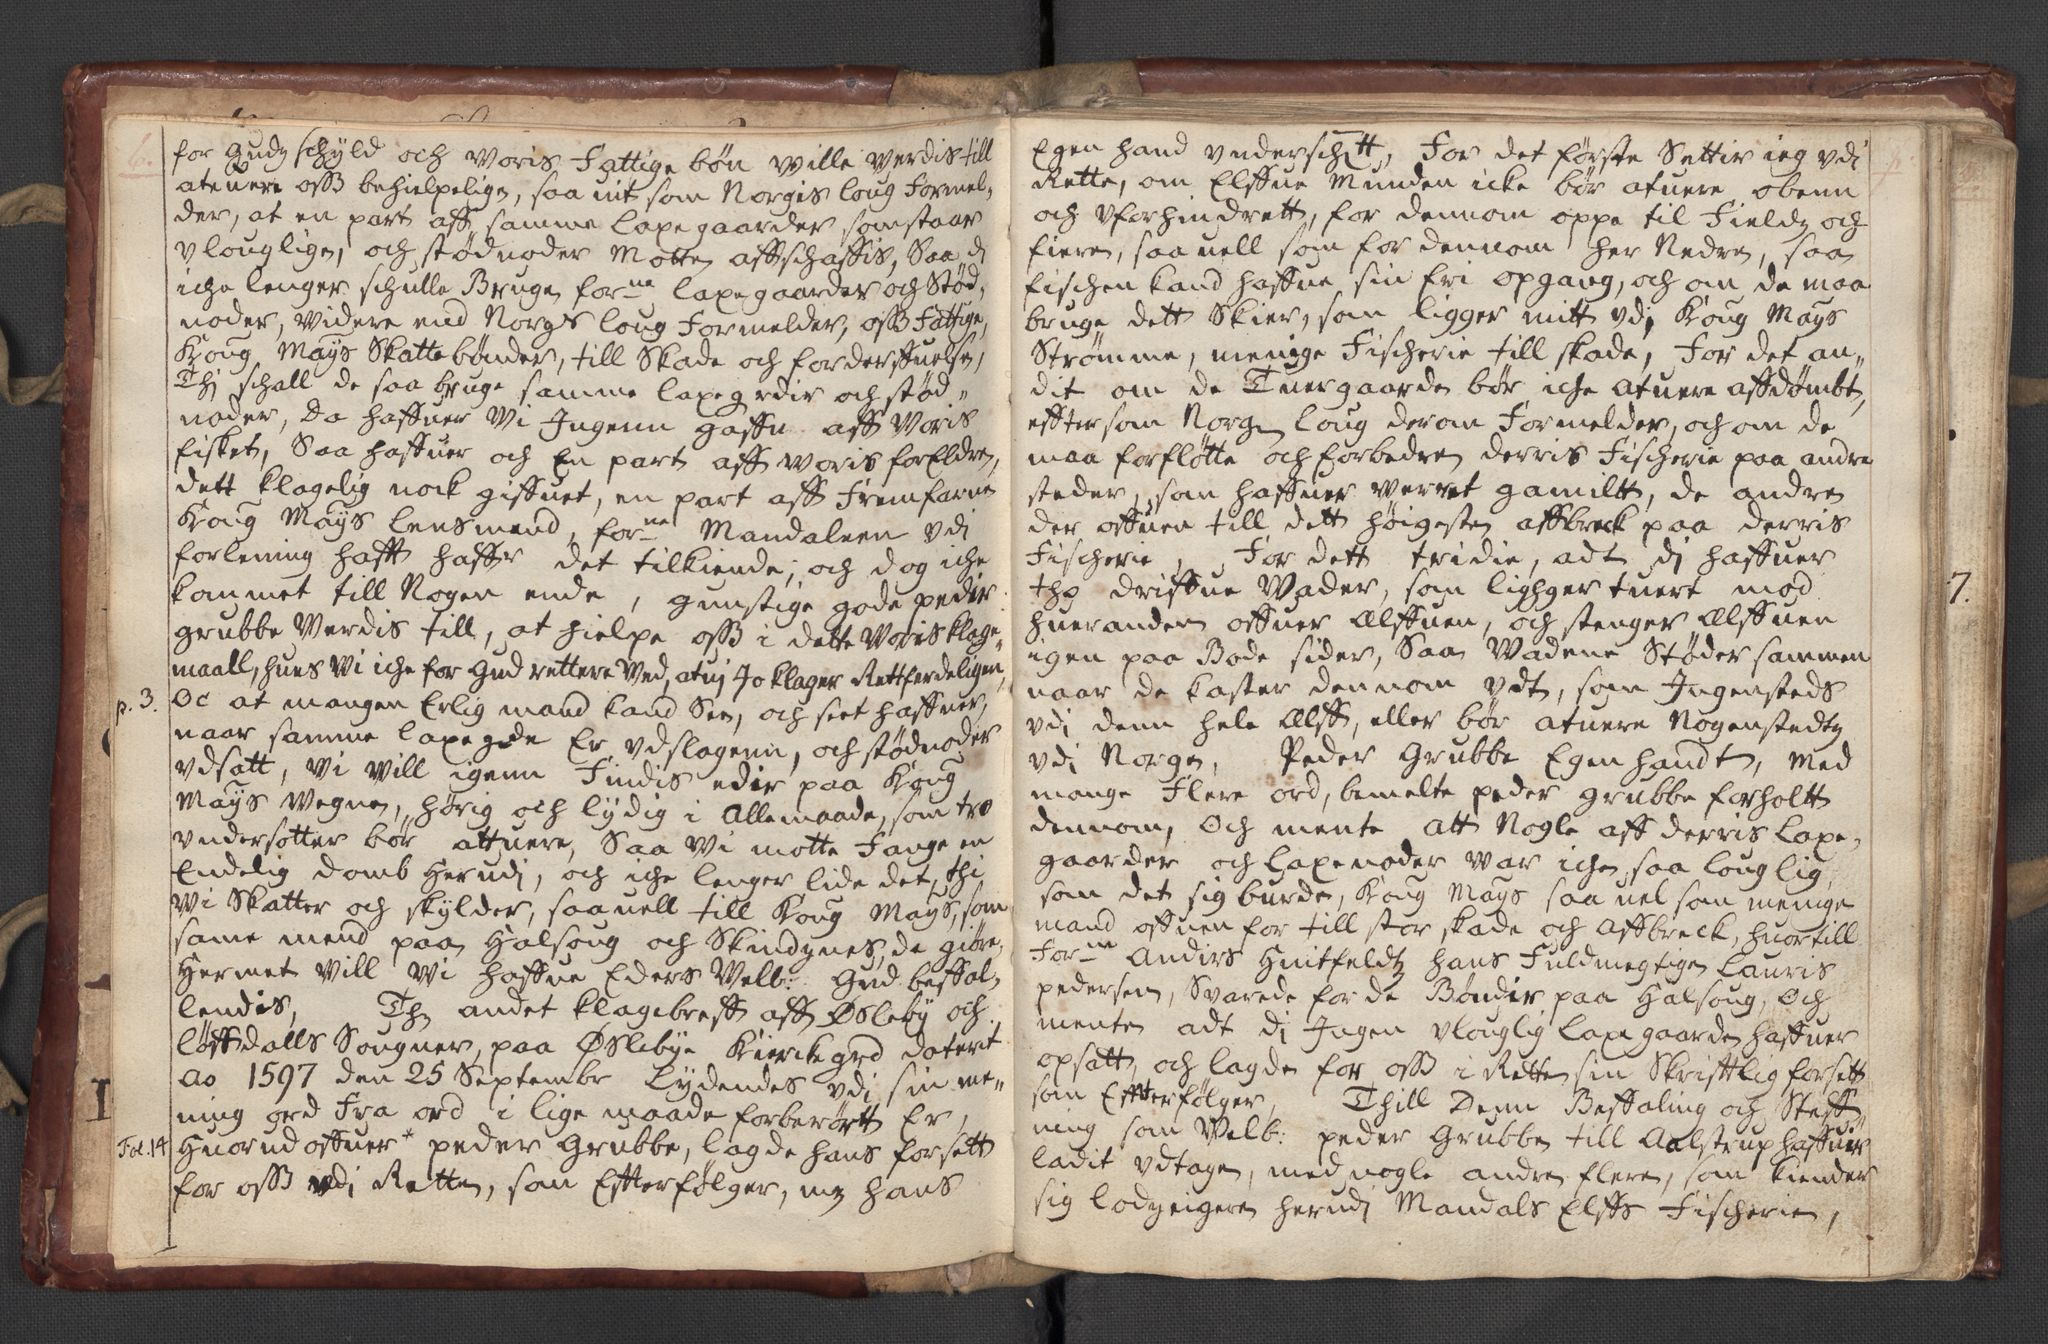 6.
for Gudz schyld och Voris Fattige bøn Wille Werdis till
atuere oss behielpelige, saa uit som Norgis loug Formel-
der, at en part aff samme laxegaarder som staar
Vlouglige, och stødnoder Motte affschaffis, Saa di
iche lenger schulle Bruge forne laxegaarder och Stød-
noder, Videre end Norgs loug Formelder, oss Fattige,
Kong Mays Skattebønder, till Skade och forderffuelse,
Thi schall de saa bruge samme laxegrdir och stød-
noder, Da haffuer Wi Ingenn gaffn aff Voris
fisket, Saa haffuer och En part aff Woris forEldre,
dett klagelig nock giffuet, en part aff Fremfarne
Kong Mays lensmend, forne Mandalenn Vdi
forlening hafft haffr det tilkiende, och dog iche
kommet till Nogen ende, gunstige gode peder
grubbe Werdis till, at hielpe oss i dette Voris klage-
maall, hues Wi iche for Gud rettere Ved, at uj Jo klager Rettferdeligen,
p. 3. Oc at mangen Erlig mand kand See, och seet haffuer,
naar samme laxegrde Er vdslagenn, och stødnoder
vdsatt, Wi will igenn Findis edir paa Kong
Mays Wegne, hørig och lydig i Allemaade, som tro
vndersotter bør attuere, Saa Wi motte Fange en
Endelig domb Herudi, och iche lenger lide det, thi
Wi Skatter och skylder, saauell till Kong Mays, som
same mend paa Halsoug och Skindznes, de giøre,
Hermet Will Wi haffue Eders Velb: Gud beffal-
lendis, Th andet klagebreff aff Øsleby och
løffdalls Sougner, paa Øslebye Kierckegrd daterit
Ao 1597 den 25 Septembr Lydendes vdi sin me-
ning ord Fra ord i lige maade forberørtt Er,
Fol. 14 Huorudoffuer* peder Grubbe, lagde hans forsett
for oss vdi Rette, som Effterfølger, mz hans
Egen hand vnderschrtt, For det første Settir ieg vdi
Rette, om Elffue Munden icke bør atuere obenn
och Vforhindrett, for dennom oppe til Fieldz och
fiere, saauell som for dennom her Nedre, saa
fischen kand haffue sin fri opgang, och om de maa
bruge dett Skier, som ligger mitt vdi Kong Mays
Strømme, menige Fischerie till skade, For det an-
dit om de Tuergaarde bør iche atuere affdømbt,
efftersom Norgs loug derom Formelder, och om de
maa forfløtte och forbedre derris Fischerie paa andre
steder, som haffuer werret gamiltt, de andre
der offuen till dett høigeste affbreck paa derris
Fischerie, For dett tridie, adt di haffuer
tho driffue Wader, som ligger tuert mod
hueranden offuer Elffuen, och stenger Elffuen
igen paa Bode sider, Saa Wadene Støder sammen
naar de kaster dennom vdt, som Ingensteds
vdi denn hele Elff, eller bør atuere Nogenstedtz
vdi Norge, Peder Grubbe Egen handt, Med
mange Flere ord, bemelte peder grubbe forholtt
dennom, Och mente att Nogle aff derris Laxe-
gaarder och Laxenoder War iche saa louglig,
som det sig burde, Kong Mays saa uel som menige
mand offuen for till stor skade och affbreck, huortill
Forne Andirs Huitfeldtz hans Fuldmegtige Lauris
pedersen, Svarede for de Bøndir paa Halsoug, Och
mente adt di Ingen Vlouglig laxegaarde haffuer
opsatt, och lagde for oss i Rette sin Skrifftlig forsett
som Effterfølger, Thill Denn Beffaling och Steff-
ning som Welb: peder Grubbe till Aalstrup haffuir
ladit vdtage, med nogle andre flere, som kiender
sig lodzeigere herudi Mandals Elffs Fischerie,
7.